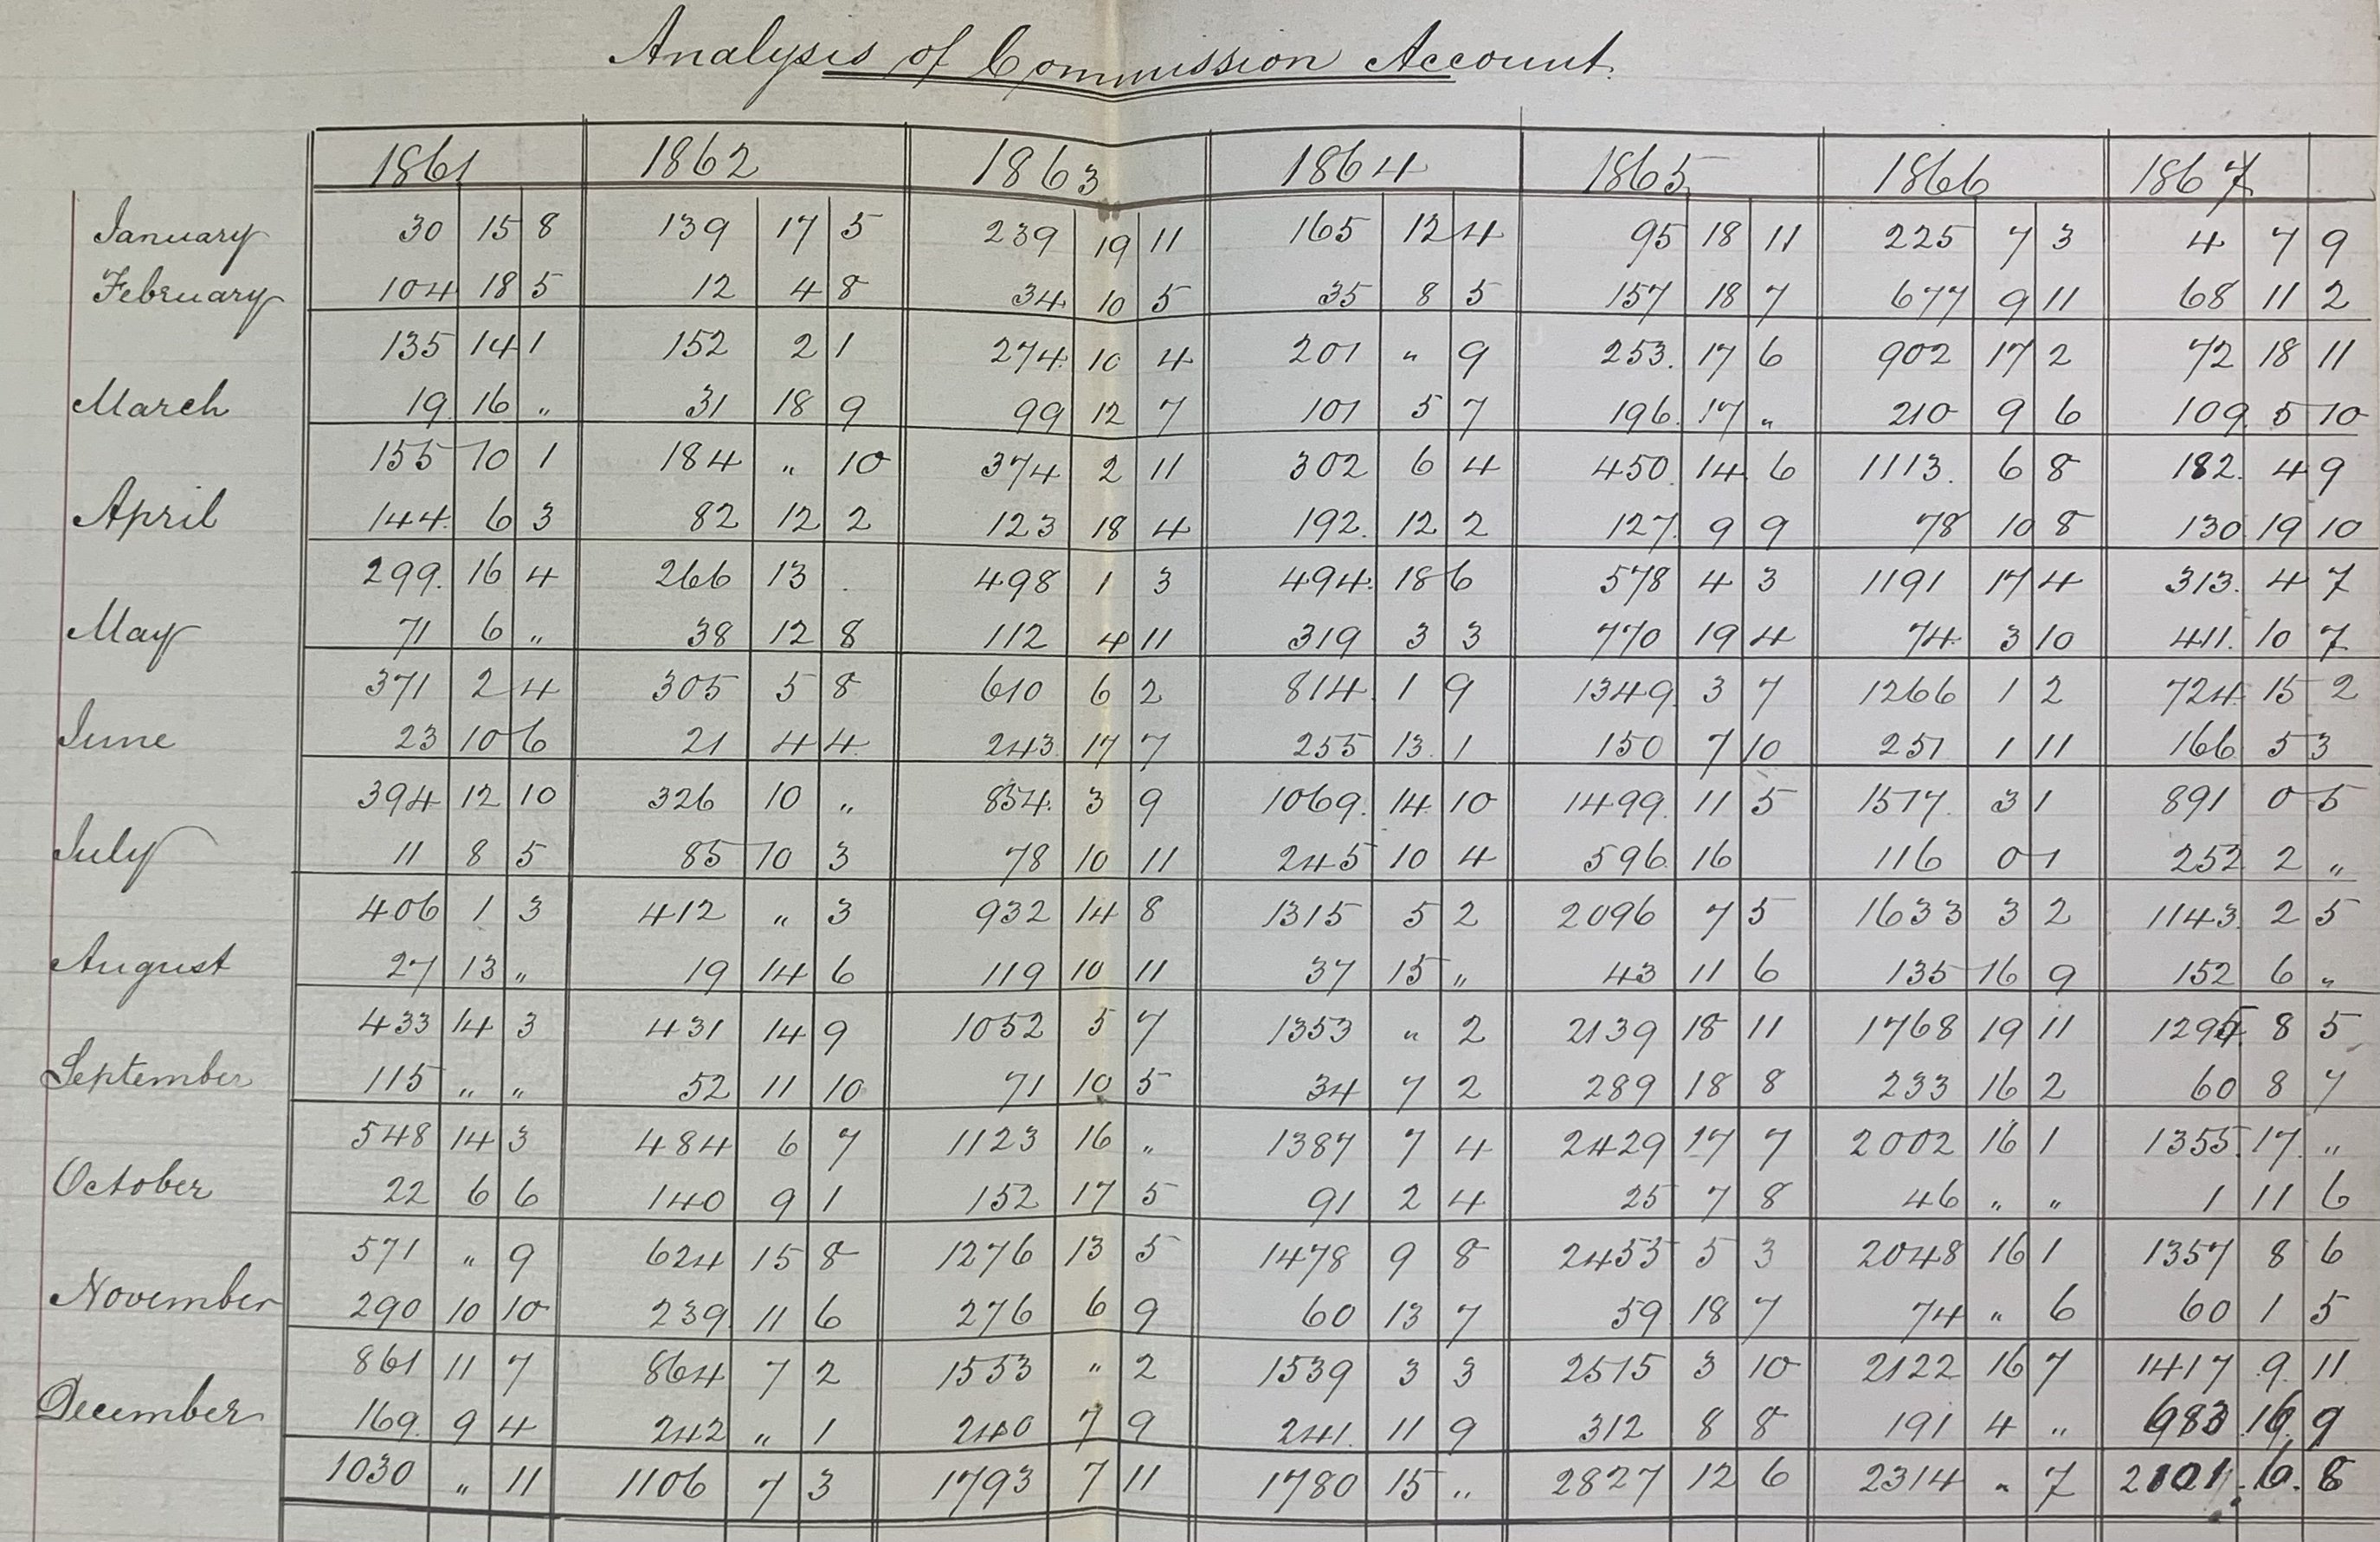 Analysis of Commission Account.
1861 1862 1863 1864 1865 1866 1867
January 30 15 8 139 17 5 239 19 11 165 12 4 95 18 11 225 7 3 4 7 9
February 104 18 5 12 4 8 34 10 5 35 8 5 157 18 7 677 9 11 68 11 2
135 14 1 152 2 1 274 10 4 201 " 9 253 17 6 902 17 2 72 18 11
March 19 16 " 31 18 9 99 12 7 101 5 7 196 17 " 210 9 6 109 5 10
155 10 1 184 " 10 374 2 11 302 6 4 450 14 6 1113 6 8 182 4 9
April 144 6 3 82 12 2 123 18 4 192 12 2 127 9 9 78 10 8 130 19 10
299 16 4 266 13 . 498 1 3 494 18 6 578 4 3 1191 17 4 313 4 7
May 71 6 " 38 12 8 112 4 11 319 3 3 770 19 4 74 3 10 411 10 7
371 2 4 305 5 8 610 6 2 814 1 9 1349 3 7 1266 1 2 724 15 2
June 23 10 6 21 4 4 243 17 7 255 13 1 150 7 10 251 1 11 166 5 3
394 12 10 326 10 " 854 3 9 1069 14 10 1499 11 5 1517 3 1 891 0 5
July 11 8 5 85 10 3 78 10 11 245 10 4 596 16 116 0 1 252 2 "
406 1 3 412 " 3 932 14 8 1315 5 2 2096 7 5 1633 3 2 1143 2 5
August 27 13 " 19 14 6 119 10 11 37 15 " 43 11 6 135 16 9 152 6 "
433 14 3 431 14 9 1052 5 7 1353 " 2 2139 18 11 1768 19 11 1295 8 5
September 115 " " 52 11 10 71 10 5 34 7 2 289 18 8 233 16 2 60 8 7
548 14 3 484 6 7 1123 16 " 1387 7 4 2429 17 7 2002 16 1 1355 17 "
October 22 6 6 140 9 1 152 17 5 91 2 4 25 7 8 46 " " 1 11 6
571 " 9 624 15 8 1276 13 5 1478 9 8 2455 5 3 2048 16 1 1357 8 6
November 290 10 10 239 11 6 276 6 9 60 13 7 59 18 7 74 " 6 60 1 5
861 11 7 864 7 2 1553 " 2 1539 3 3 2515 3 10 2122 16 7 1417 9 11
December 169 9 4 242 " 1 240 7 9 241 11 9 312 8 8 191 4 " 683 16 9
1030 " 11 1106 7 3 1793 7 11 1780 15 " 2827 12 6 2314 " 7 2101 6 8